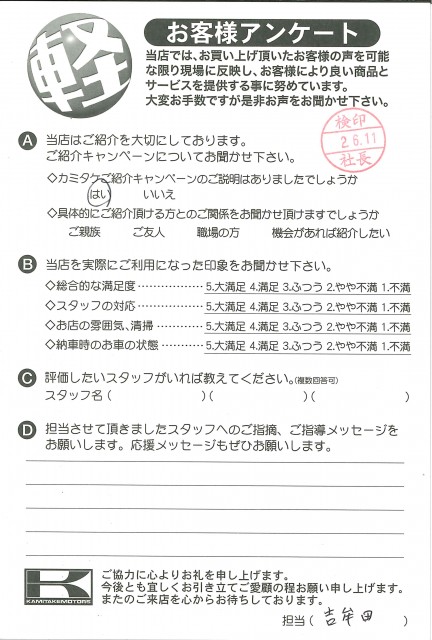 軽
お客様アンケート
当店では、お買い上げ頂いたお客様の声を可能
な限り現場に反映し、お客様により良い商品と
サービスを提供する事に努めています。
大変お手数ですが是非お声をお聞かせ下さい。
検印
26.11
社長
A 当店はご紹介を大切にしております。
ご紹介キャンペーンについてお聞かせ下さい。
◇カミタケご紹介キャンペーンのご説明はありましたでしょうか
はい いいえ
◇具体的にご紹介頂ける方とのご関係をお聞かせ頂けますでしょうか
ご親族 ご友人 職場の方 機会があれば紹介したい
B 当店を実際にご利用になった印象をお聞かせ下さい。
◇総合的な満足度 ‥‥‥‥‥‥ 5.大満足 4.満足 3.ふつう 2.やや不満 1.不満
◇スタッフの対応 ‥‥‥‥‥‥ 5.大満足 4.満足 3.ふつう 2.やや不満 1.不満
◇お店の雰囲気、清掃 ‥‥‥‥ 5.大満足 4.満足 3.ふつう 2.やや不満 1.不満
◇納車時のお車の状態 ‥‥‥‥ 5.大満足 4.満足 3.ふつう 2.やや不満 1.不満
C 評価したいスタッフがいれば教えてください。(複数回答可)
スタッフ名( )( )( )
D 担当させて頂きましたスタッフへのご指摘、ご指導メッセージを
お願いします。応援メッセージもぜひお願いします。
KAMITAKEMOTORS
ご協力に心よりお礼を申し上げます。
今後とも宜しくお引き立てご愛顧の程お願い申し上げます。
またのご来店を心からお待ちしております。
担当( 吉牟田 )